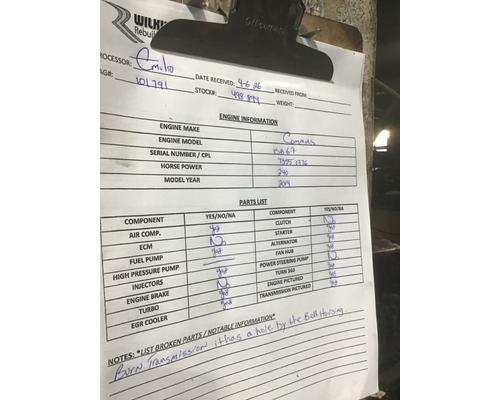 WILKI
Rebuil
ROCESSOR: Emilio DATE RECEIVED: 4-6-26 RECEIVED FROM:
AG#: 101791 STOCK#: 498 894 WEIGHT:
ENGINE INFORMATION
ENGINE MAKE Cummins
ENGINE MODEL ISB 6.7
SERIAL NUMBER / CPL
HORSE POWER 240
MODEL YEAR 2014
PARTS LIST
COMPONENT YES/NO/NA COMPONENT YES/NO/NA
AIR COMP. yes CLUTCH No
ECM No STARTER yes
FUEL PUMP yes ALTERNATOR yes
HIGH PRESSURE PUMP FAN HUB
INJECTORS yes POWER STEERING PUMP No
ENGINE BRAKE No TURN 360 yes
TURBO yes ENGINE PICTURED yes
EGR COOLER yes TRANSMISSION PICTURED yes
NOTES: *LIST BROKEN PARTS / NOTABLE INFORMATION*
Burn Transmission it has a hole by the Bell Housing